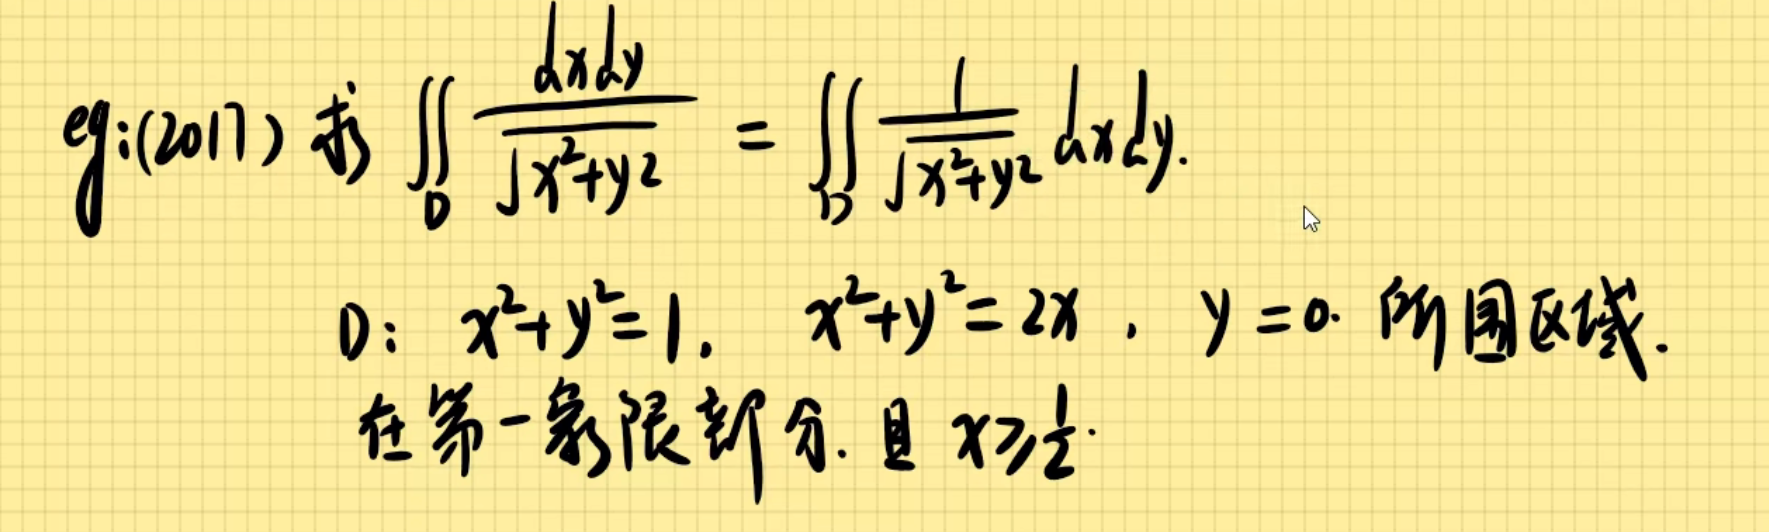 eg:(2017) 求 ∬_D dxdy/√(x²+y²) = ∬_D 1/√(x²+y²) dxdy.
D: x²+y²=1, x²+y²=2x, y=0. 所围区域.
在第一象限部分.且 x≥1/2.